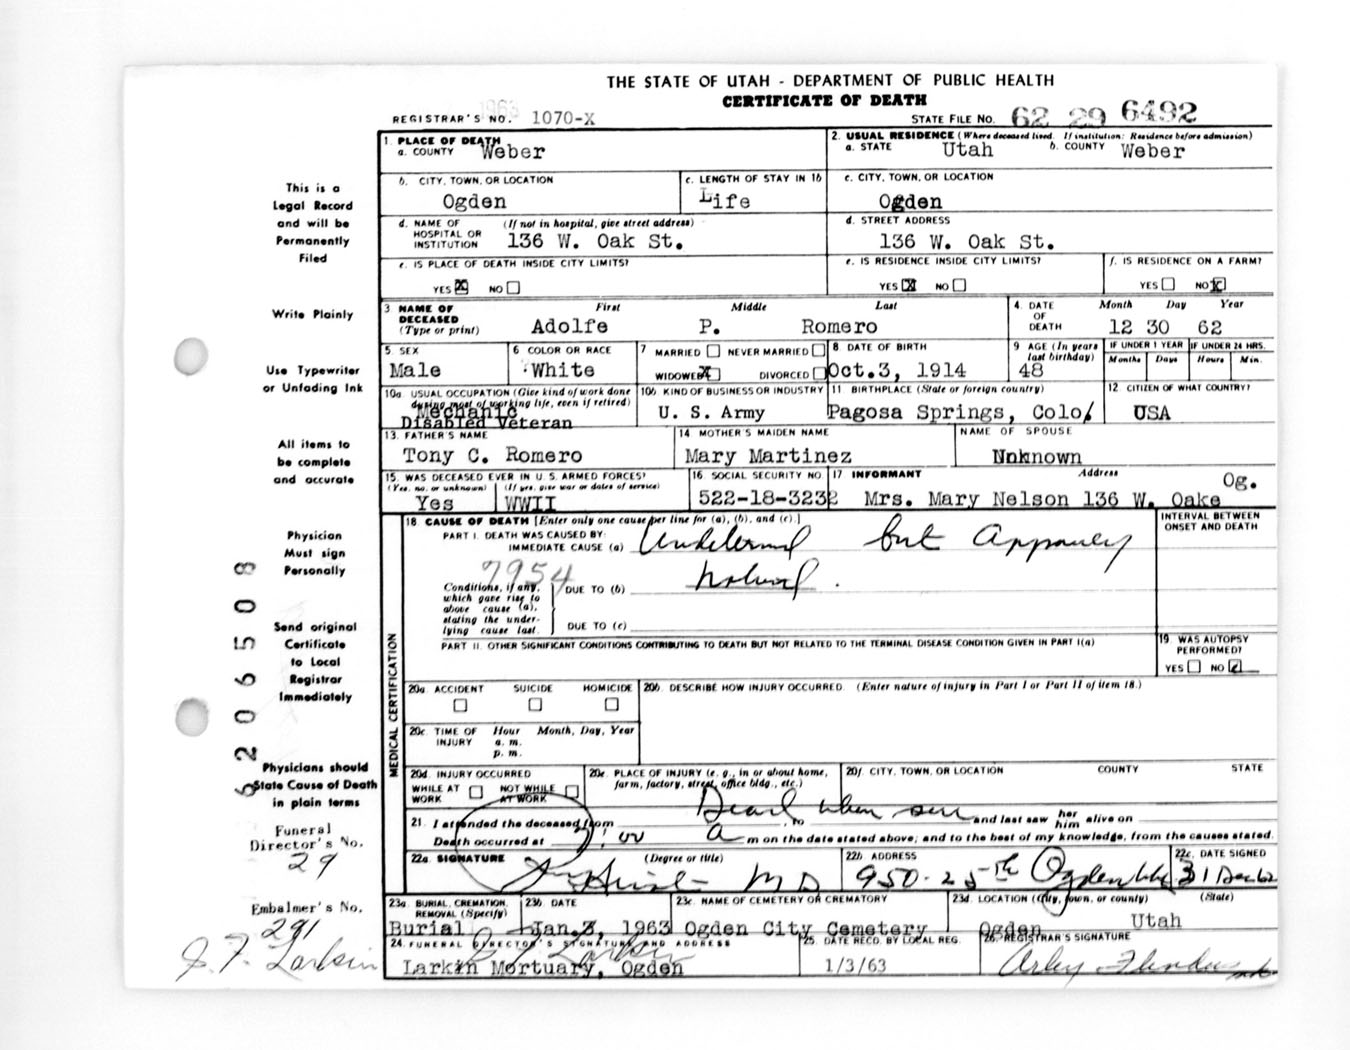 THE STATE OF UTAH - DEPARTMENT OF PUBLIC HEALTH
CERTIFICATE OF DEATH
1963
REGISTRAR'S NO. 1070-X
STATE FILE NO. 62 29 6492
1. PLACE OF DEATH
a. COUNTY Weber
2. USUAL RESIDENCE (Where deceased lived. If institution: Residence before admission)
a. STATE Utah b. COUNTY Weber
b. CITY, TOWN, OR LOCATION
Ogden
c. LENGTH OF STAY IN 1b
Life
c. CITY, TOWN, OR LOCATION
Ogden
d. NAME OF HOSPITAL OR INSTITUTION (If not in hospital, give street address)
136 W. Oak St.
d. STREET ADDRESS
136 W. Oak St.
e. IS PLACE OF DEATH INSIDE CITY LIMITS?
YES X NO
e. IS RESIDENCE INSIDE CITY LIMITS?
YES X NO
f. IS RESIDENCE ON A FARM?
YES NO X
3 NAME OF DECEASED (Type or print)
First Middle Last
Adolfe P. Romero
4. DATE OF DEATH
Month Day Year
12 30 62
5. SEX
Male
6 COLOR OR RACE
White
7 MARRIED NEVER MARRIED
WIDOWED X DIVORCED
8 DATE OF BIRTH
Oct.3, 1914
9 AGE (In years last birthday)
48
IF UNDER 1 YEAR
Months Days
IF UNDER 24 HRS.
Hours Min.
10a. USUAL OCCUPATION (Give kind of work done during most of working life, even if retired)
Mechanic
Disabled Veteran
10b KIND OF BUSINESS OR INDUSTRY
U. S. Army
11 BIRTHPLACE (State or foreign country)
Pagosa Springs, Colo.
12 CITIZEN OF WHAT COUNTRY?
USA
13. FATHER'S NAME
Tony C. Romero
14 MOTHER'S MAIDEN NAME
Mary Martinez
NAME OF SPOUSE
Unknown
15. WAS DECEASED EVER IN U. S. ARMED FORCES?
(Yes, no, or unknown) (If yes, give war or dates of service)
Yes WWII
16 SOCIAL SECURITY NO.
522-18-3232
17 INFORMANT Address
Mrs. Mary Nelson 136 W. Oake Og.
18 CAUSE OF DEATH [Enter only one cause per line for (a), (b), and (c).]
PART I. DEATH WAS CAUSED BY:
IMMEDIATE CAUSE (a)
but
7954
Conditions, if any, which gave rise to above cause (a), stating the underlying cause last.
DUE TO (b)
DUE TO (c)
INTERVAL BETWEEN ONSET AND DEATH
PART II. OTHER SIGNIFICANT CONDITIONS CONTRIBUTING TO DEATH BUT NOT RELATED TO THE TERMINAL DISEASE CONDITION GIVEN IN PART I(a)
19. WAS AUTOPSY PERFORMED?
YES NO
20a. ACCIDENT SUICIDE HOMICIDE
20b. DESCRIBE HOW INJURY OCCURRED. (Enter nature of injury in Part I or Part II of item 18.)
20c. TIME OF INJURY Hour Month, Day, Year
a. m.
p. m.
20d. INJURY OCCURRED
WHILE AT WORK NOT WHILE AT WORK
20e. PLACE OF INJURY (e. g., in or about home, farm, factory, street, office bldg., etc.)
20f. CITY, TOWN, OR LOCATION COUNTY STATE
21. I attended the deceased from Dead when seen , to and last saw her him alive on
Death occurred at A m on the date stated above; and to the best of my knowledge, from the causes stated.
22a. SIGNATURE (Degree or title)
MD
22b. ADDRESS
950-25th Ogden
22c. DATE SIGNED
31 Dec 62
23a. BURIAL, CREMATION, REMOVAL (Specify)
Burial
23b. DATE
Jan.3, 1963
23c. NAME OF CEMETERY OR CREMATORY
Ogden City Cemetery
23d. LOCATION (City, town, or county) (State)
Ogden Utah
24. FUNERAL DIRECTOR'S SIGNATURE AND ADDRESS
Larkin Mortuary, Ogden
25. DATE RECD. BY LOCAL REG.
1/3/63
26. REGISTRAR'S SIGNATURE
MEDICAL CERTIFICATION
This is a
Legal Record
and will be
Permanently
Filed
Write Plainly
Use Typewriter
or Unfading Ink
All items to
be complete
and accurate
Physician
Must sign
Personally
Send original
Certificate
to Local
Registrar
Immediately
Physicians should
State Cause of Death
in plain terms
Funeral
Director's No.
29
Embalmer's No.
291
J. F. Larkin
6206508